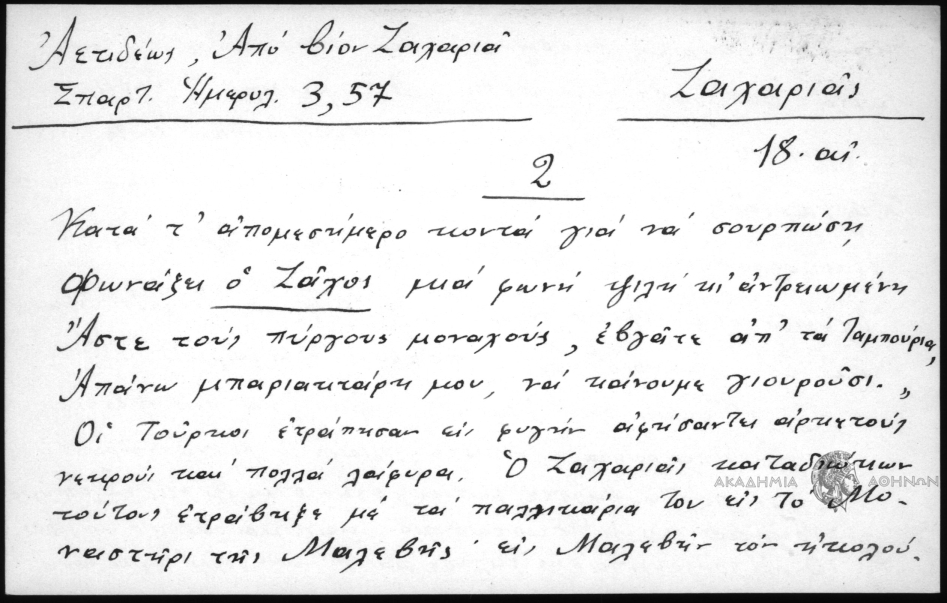 Ἀετιδέως, Ἀπό βίον Ζαχαριᾶ
Σπαρτ. Ἡμερολ. 3, 57
Ζαχαριᾶς
18. αἰ.
2
Κατά τ' ἀπομεσήμερο κοντά γιά νά σουρπώσῃ
Φωνάζει ὁ Ζᾶχος μιά φωνή ψιλή κι' ἀντρειωμένη
Ἄστε τούς πύργους μοναχούς, ἐβγᾶτε ἀπ' τά ταμπούρια,
Ἀπάνω μπαριακτάρη μου, νά κάνουμε γιουροῦσι.„
Οἱ Τοῦρκοι ἐτράπησαν εἰς φυγήν ἀφήσαντες ἀρκετούς
νεκρούς καί πολλά λάφυρα. Ὁ Ζαχαριᾶς καταδιώκων
τούτους ἐτράβηξε μέ τά παλληκάρια του εἰς τό Μο-
ναστῆρι τῆς Μαλεβῆς· εἰς Μαλεβήν τόν ἠκολού-
ΑΚΑΔΗΜΙΑ ΑΘΗΝΩΝ